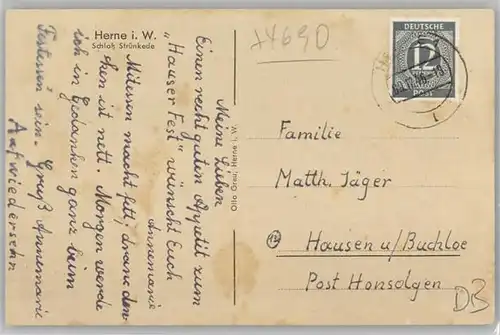 Herne i. W.
Schloß Strünkede
74690
Meine Lieben
Einen recht guten Appetit zum
"Hauser Fest" wünscht Euch
Annemarie
Mitessen macht fett, drann den-
ken ist nett. Morgen werde
ich in Gedanken ganz beim
Festessen sein. Gruß Annemarie
Aufwiedersehn
Otto Greu, Herne i. W.
DEUTSCHE
12
POST
Familie
Matth. Jäger
Hausen u/Buchloe
Post Honsolgen
DB